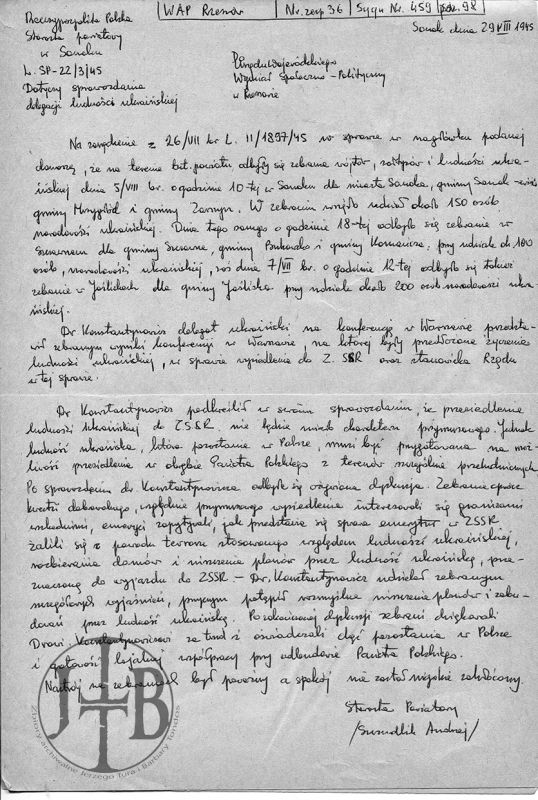 WAP Rzeszów | Nr. zesp 36 | Sygn Nr. 459 | str. 98
Rzeczypospolita Polska
Sanok dnia 29 VIII 1945
Starosta powiatowy
w Sanoku
L. SP-22/3/45
Dotyczy sprawozdania
delegacji ludności ukraińskiej
Urzędu Wojewódzkiego
Wydział Społeczno-Polityczny
w Rzeszowie
Na zarządzenie z 26/VII br L. II/1897/45 w sprawie w nagłówku podanej
donoszę, że na terenie tut. powiatu odbyły się zebrania wójtów, sołtysów i ludności ukra-
ińskiej dnia 5/VIII br. o godzinie 10-tej w Sanoku dla miasta Sanoka, gminy Sanok-wieś
gminy Mrzygłód i gminy Zarszyn. W zebraniu wzięło udział około 150 osób
narodowości ukraińskiej. Dnia tego samego o godzinie 18-tej odbyło się zebranie w
dla gminy gminy Bukowsko i gminy Komańcza, przy udziale ok 100
osób, narodowości ukraińskiej, zaś dnia 7/VII br. o godzinie 12-tej odbyło się także
zebranie w Jaśliskach dla gminy Jaśliska przy udziale około 200 osób narodowości ukra-
ińskiej.
Dr Konstantynowicz delegat ukraiński na konferencję w Warszawie przedsta-
wił zebranym wyniki konferencji w Warszawie, na której były przedłożone życzenia
ludności ukraińskiej, w sprawie wysiedlenia do Z.SSR oraz stanowiska Rządu
w tej sprawie.
Dr Konstantynowicz podkreślił w swoim sprawozdaniu, że przesiedlenie
ludności ukraińskiej do ZSSR. nie będzie miało charakteru przymusowego. Jednak
ludność ukraińska, która pozostanie w Polsce, musi być przygotowana na moż-
liwość przesiedlenia w obrębie Państwa Polskiego z terenów szczególnie przeludnionych.
Po sprawozdaniu dr Konstantynowicza odbyła się ożywiona dyskusja. Zebrani oprócz
kwestii dobrowolnego, względnie przymusowego wysiedlenia interesowali się granicami
wschodnimi, emeryci zapytywali, jak przedstawia się sprawa emerytur w ZSSR
żalili się z powodu terroru stosowanego względem ludności ukraińskiej,
rozbierania domów i niszczenia plonów przez ludność ukraińską, prze-
znaczoną do wyjazdu do ZSSR – Dr. Konstantynowicz udzielał zebranym
szczegółowych wyjaśnień, przyczym potępił rozmyślne niszczenie plonów i zabu-
dowań przez ludność ukraińską. Po zakończeniu dyskusji zebrani dziękowali
Drowi Konstantynowiczowi za trud i oświadczali chęć pozostania w Polsce
i gotowość lojalnej współpracy przy odbudowie Państwa Polskiego.
Nastrój na zebraniach był poważny a spokój nie został nigdzie zakłócony.
Starosta Powiatowy
/Szczudlik Andrzej/
JTB
Zbiory archiwalne Jerzego Tura i Barbary Tondos